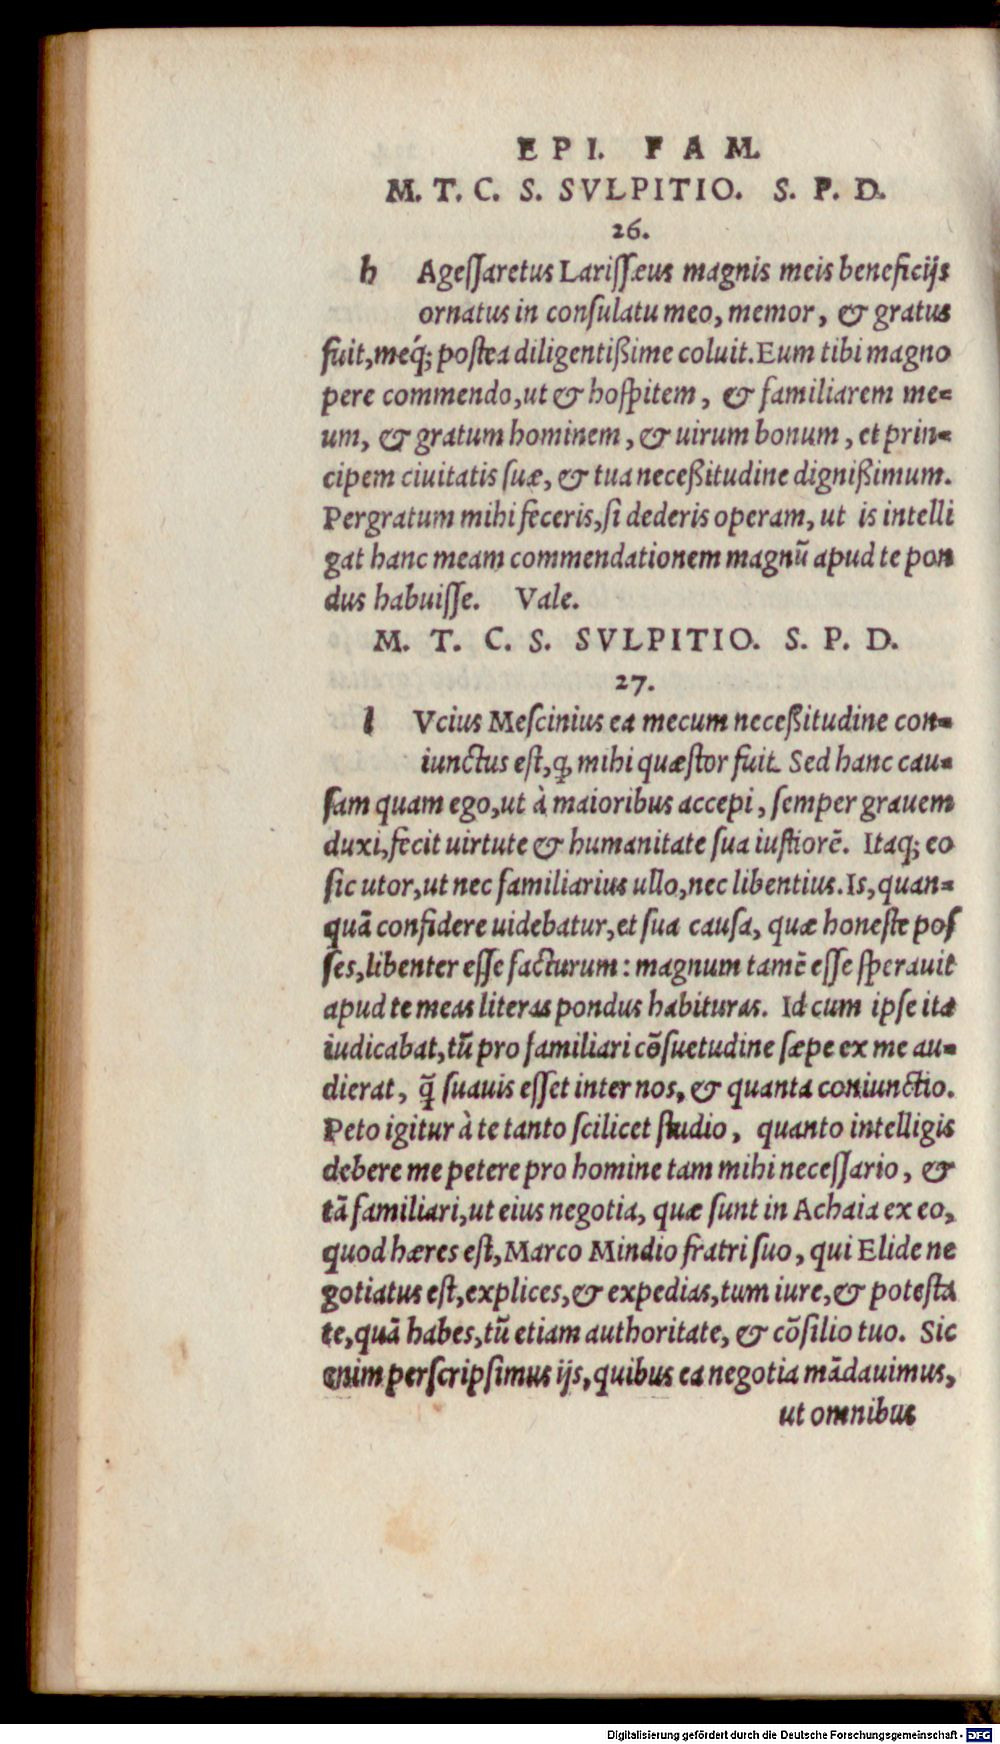 EPI. FAM.
M. T. C. S. SVLPITIO. S. P. D.
26.
h Ageſſaretus Lariſſæus magnis meis beneficijs
ornatus in conſulatu meo, memor, & gratus
fuit, meq́; poſtea diligentißime coluit. Eum tibi magno
pere commendo, ut & hoſpitem, & familiarem me-
um, & gratum hominem, & uirum bonum, et prin-
cipem ciuitatis ſuæ, & tua neceßitudine dignißimum.
Pergratum mihi feceris, ſi dederis operam, ut is intelli
gat hanc meam commendationem magnũ apud te pon
dus habuiſſe. Vale.
M. T. C. S. SVLPITIO. S. P. D.
27.
l Vcius Meſcinius ea mecum neceßitudine con-
iunctus eſt, ꝙ mihi quæſtor fuit. Sed hanc cau-
ſam quam ego, ut à maioribus accepi, ſemper grauem
duxi, fecit uirtute & humanitate ſua iuſtiorẽ. Itaq; eo
ſic utor, ut nec familiarius ullo, nec libentius. Is, quan-
quã confidere uidebatur, et ſua cauſa, quæ honeſte poſ
ſes, libenter eſſe facturum: magnum tamẽ eſſe ſperauit
apud te meas literas pondus habituras. Id cum ipſe ita
iudicabat, tũ pro familiari cõſuetudine ſæpe ex me au-
dierat, q̃ ſuauis eſſet inter nos, & quanta coniunctio.
Peto igitur à te tanto ſcilicet ſtudio, quanto intelligis
debere me petere pro homine tam mihi neceſſario, &
tã familiari, ut eius negotia, quæ ſunt in Achaia ex eo,
quod hæres eſt, Marco Mindio fratri ſuo, qui Elide ne
gotiatus eſt, explices, & expedias, tum iure, & poteſta
te, quã habes, tũ etiam authoritate, & cõſilio tuo. Sic
enim perſcripſimus ijs, quibus ea negotia mãdauimus,
ut omnibus
Digitalisierung gefördert durch die Deutsche Forschungsgemeinschaft - DFG